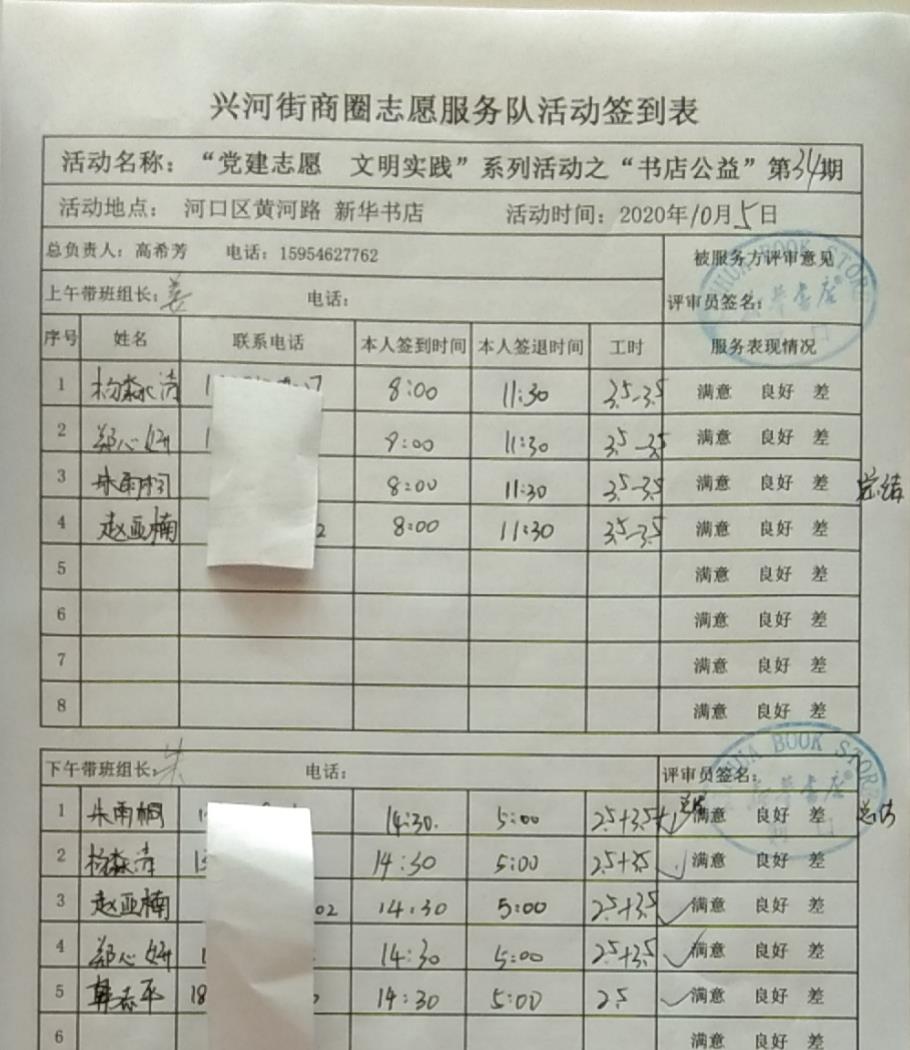 兴河街商圈志愿服务队活动签到表
活动名称：“党建志愿 文明实践”系列活动之“书店公益”第34期
活动地点： 河口区黄河路 新华书店 活动时间：2020年10月5日
总负责人：高希芳 电话：15954627762 被服务方评审意见
上午带班组长：姜 电话： 评审员签名：
序号 姓名 联系电话 本人签到时间 本人签退时间 工时 服务表现情况
1 杨淼清 8:00 11:30 3.5-3.5 满意 良好 差
2 郑心妍 9:00 11:30 3.5-3.5 满意 良好 差
3 朱雨桐 8:00 11:30 3.5-3.5 满意 良好 差 总结
4 赵亚楠 2 8:00 11:30 3.5-3.5 满意 良好 差
5 满意 良好 差
6 满意 良好 差
7 满意 良好 差
8 满意 良好 差
下午带班组长：朱 电话： 评审员签名：
1 朱雨桐 14:30. 5:00 2.5+3.5+1 满意 良好 差 总结
2 杨淼清 14:30 5:00 2.5+3.5 满意 良好 差
3 赵亚楠 02 14:30 5:00 2.5+3.5 满意 良好 差
4 郑心妍 14:30 5:00 2.5+3.5 满意 良好 差
5 韩志平 18 14:30 5:00 2.5 满意 良好 差
6 满意 良好 差
HUA BOOK STORE
新华书店
HUA BOOK STORE
新华书店